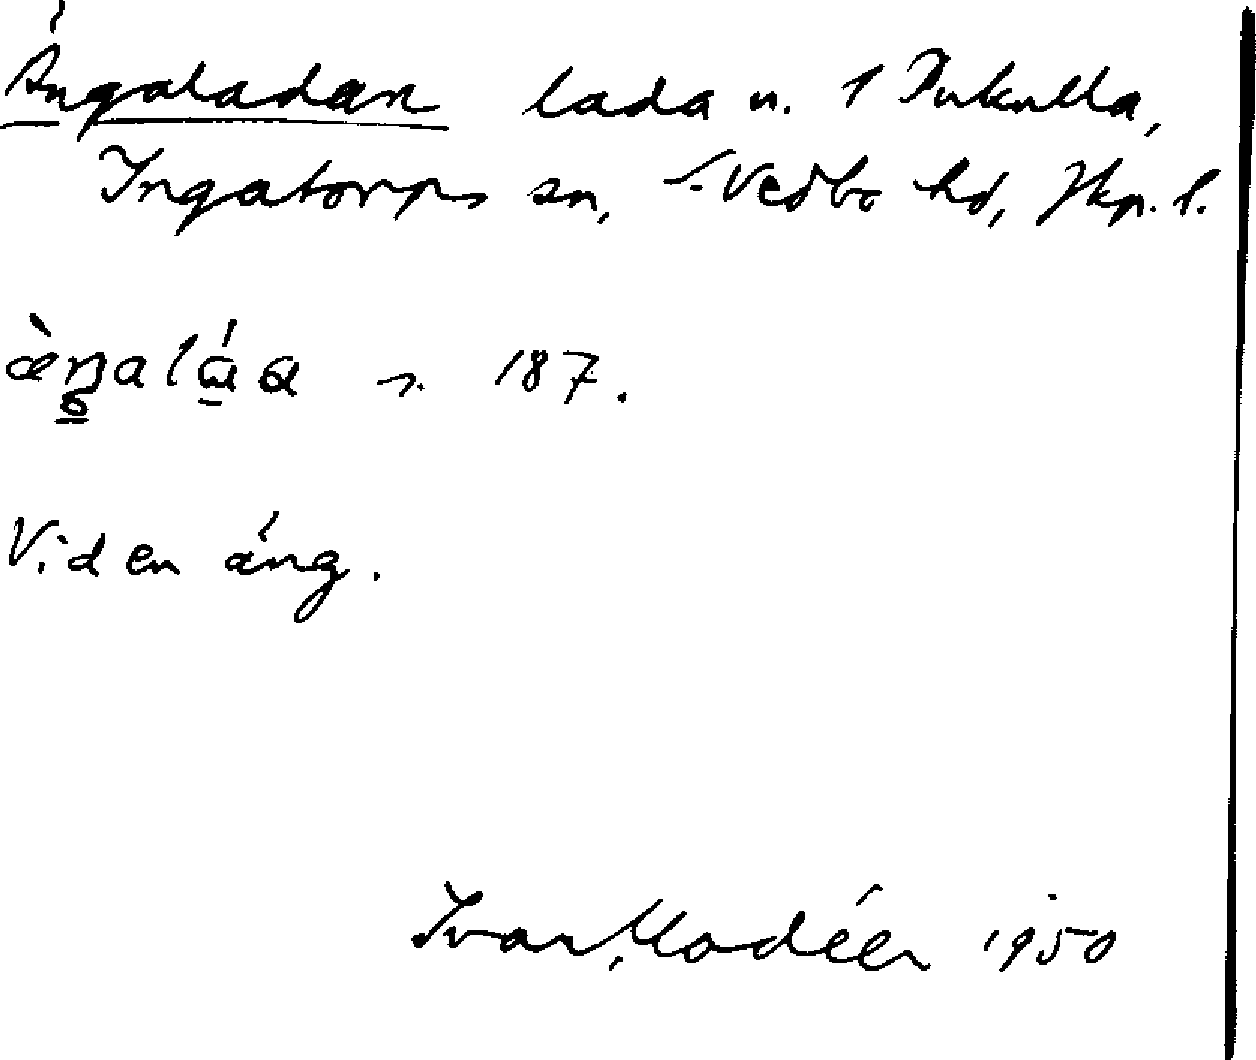 Ängaladan lada u. 1 Pukulla,
Ingatorps sn, S. Vedbo hd, Jkp. l.
187.
Vid en äng.
Ivar Modéer 1950